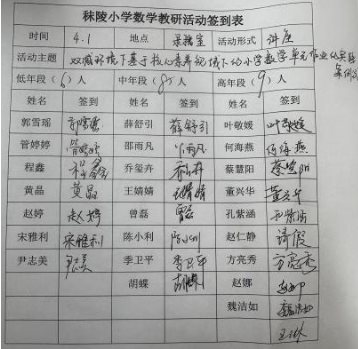 秣陵小学数学教研活动签到表
时间 4.1 地点 录播室 活动形式 讲座
活动主题 双减环境下基于核心素养视域下的小学数学单元作业的实践案例
低年段(6)人 中年段(8)人 高年段(9)人
姓名 签到 姓名 签到 姓名 签到
郭雪瑶 郭雪瑶 薛舒引 薛舒引 叶敬媛 叶敬媛
管婷婷 管婷婷 邵雨凡 邵雨凡 何海燕 何海燕
程鑫 程鑫 乔玺卉 乔玺卉 蔡慧阳 蔡慧阳
黄晶 黄晶 王婧婧 王婧婧 董兴华 董兴华
赵婷 赵婷 曾磊 曾磊 孔紫涵 孔紫涵
宋雅利 宋雅利 陈小利 陈小利 赵仁静 请假
尹志美 季卫平 季卫平 方亮秀 方亮秀
胡蝶 胡蝶 赵娜 赵娜
魏洁如 魏洁如
王琳